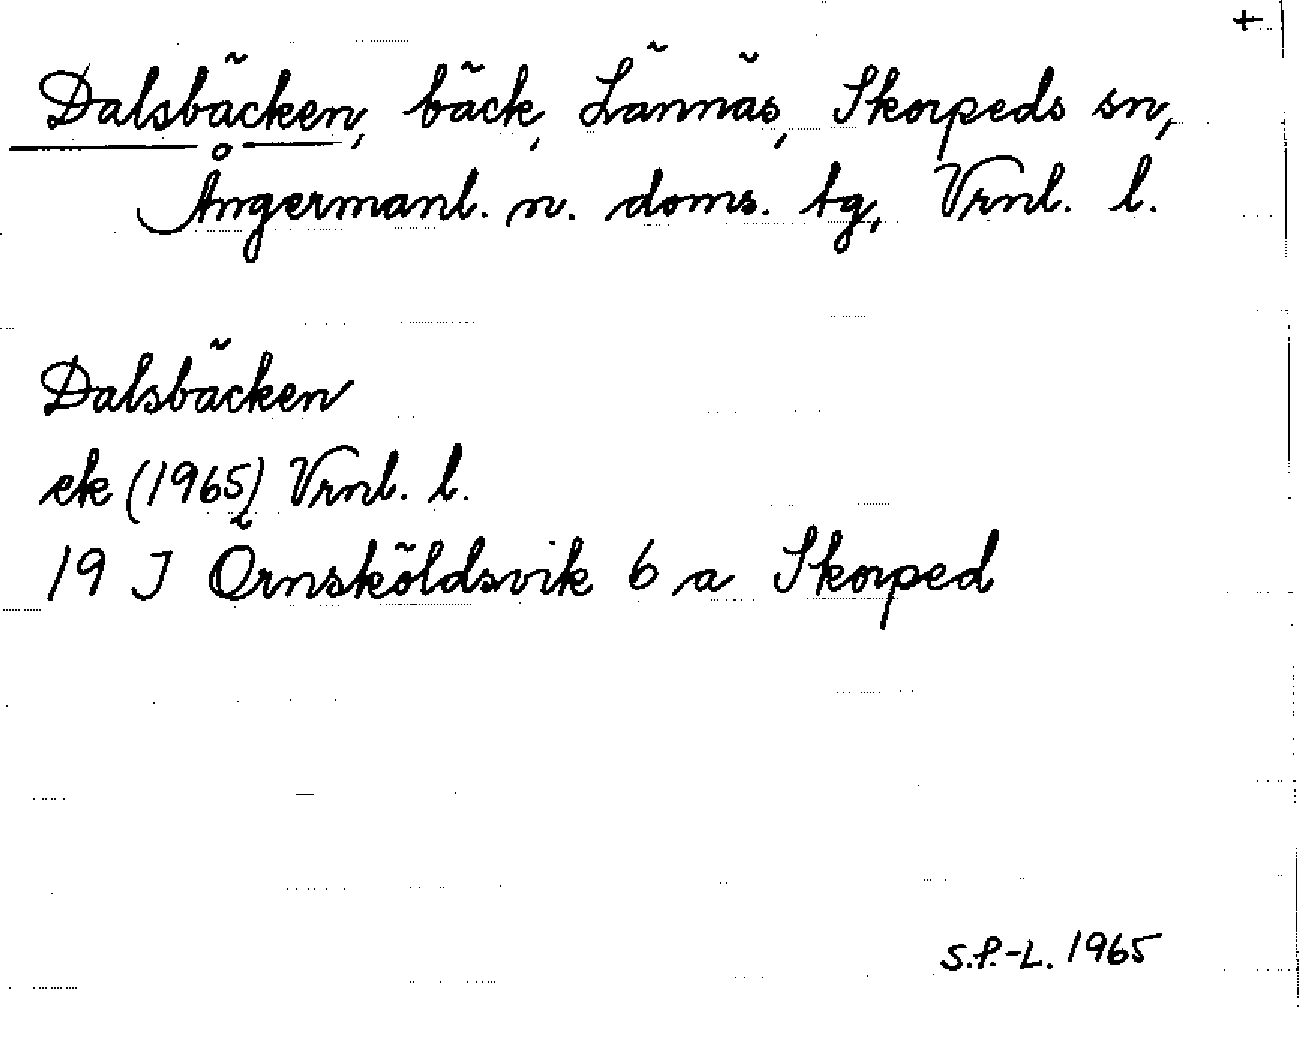 +
Dalsbäcken, bäck, Lännäs, Skorpeds sn,
Ångermanl. n. doms. tg, Vrnl. l.
Dalsbäcken
ek (1965) Vrnl. l.
19 J Örnsköldsvik 6 a Skorped
S.P.-L. 1965